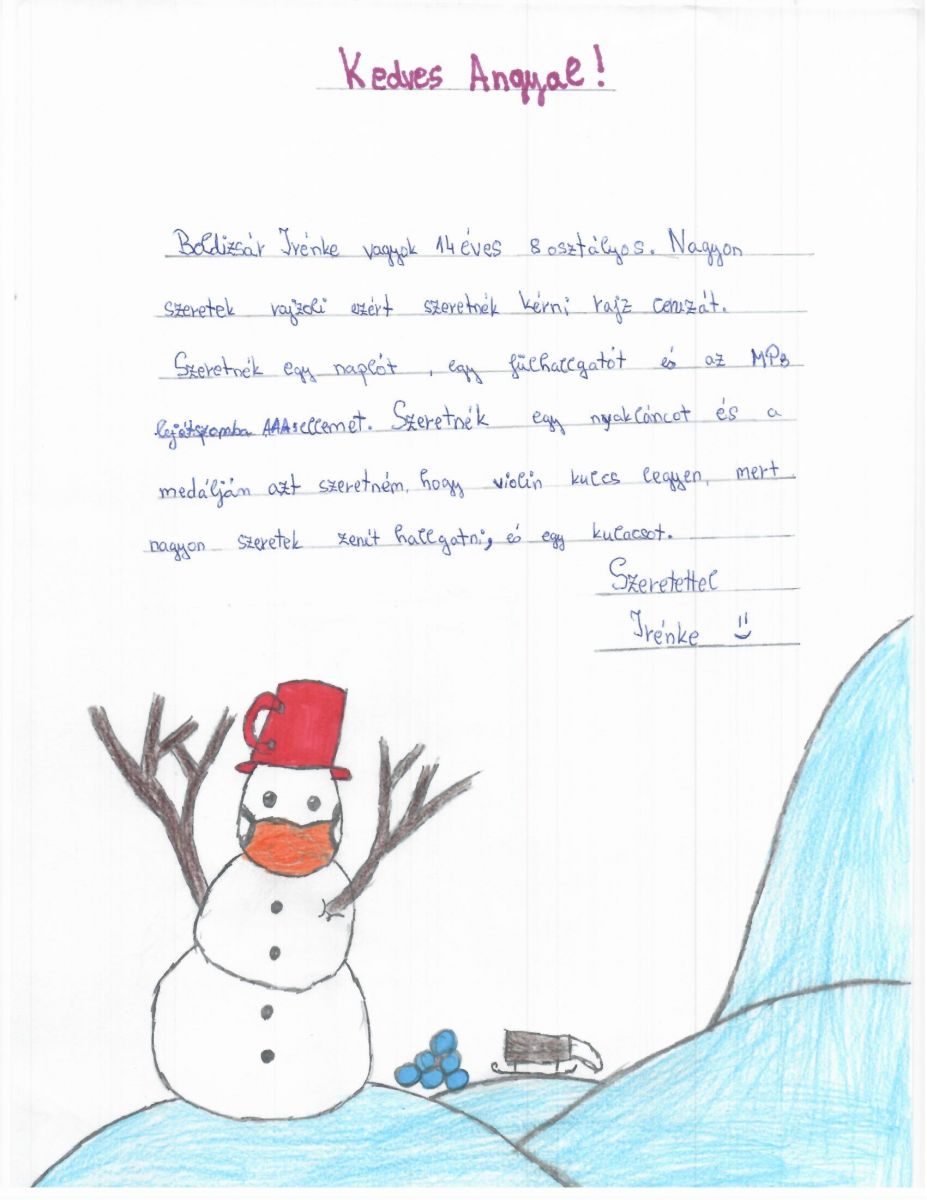 Kedves Angyal!
Boldizsár Irénke vagyok 14 éves 8 osztályos. Nagyon
szeretek rajzoli ezért szeretnék kérni rajz ceruzát.
Szeretnék egy naplót, egy fülhallgatót és az MP3
lejátszomba AAAsellemet. Szeretnék egy nyakláncot és a
medálján azt szeretném, hogy violin kulcs legyen, mert
nagyon szeretek zenít hallgatni, és egy kulacsot.
Szeretettel
Irénke